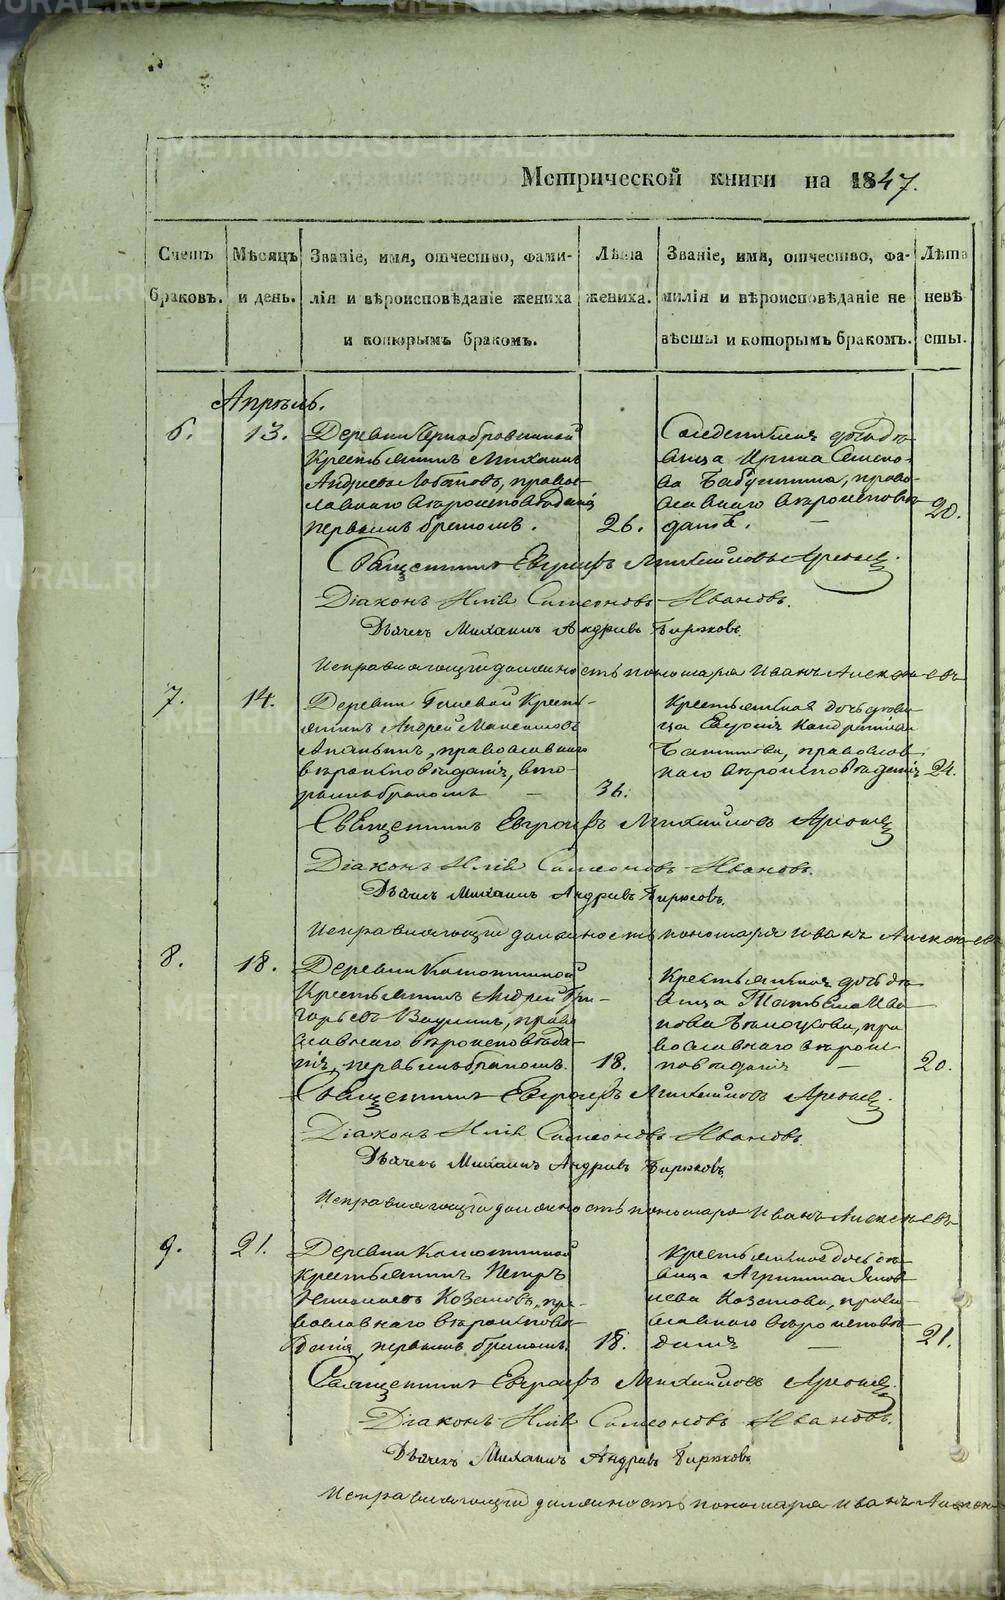 Метрической книги на 1847.
Счетъ браковъ.
Мѣсяцъ и день.
Званіе, имя, отчество, фами-
лія и вѣроисповѣданіе жениха
и которымъ бракомъ.
Лѣта жениха.
Званіе, имя, отчество, фа-
милія и вѣроисповѣданіе не
вѣсты и которымъ бракомъ.
Лѣта невѣ
сты.
Апрѣль.
6.
13.
Деревни
Крестьянинъ Михаилъ
Андреевъ Лобановъ, правос-
лавнаго вѣроисповѣданія
первымъ бракомъ.
26.
дочь дѣ-
вица Ирина Семено-
ва Бабушкина, право-
славнаго вѣроисповѣ-
данія.
20.
Священникъ Евграфъ Михайловъ
Діаконъ Илія Симеоновъ Ивановъ.
Дьячекъ Михаилъ Андріевъ Бирюковъ.
Исправляющій должность пономаря Иванъ Алексѣевъ
7.
14.
Деревни Кресть-
янинъ Андрей Максимовъ
Ананьинъ, православнаго
вѣроисповѣданія, вто-
рымъ бракомъ
36.
Крестьянская дочь дѣви-
ца Евдокія Кондратьева
православ-
наго вѣроисповѣданія
24.
Священникъ Евграфъ Михайловъ
Діаконъ Илія Симеоновъ Ивановъ.
Дьячекъ Михаилъ Андріевъ Бирюковъ.
Исправляющій должность пономаря Иванъ Алексѣевъ
8.
18.
Деревни
Крестьянинъ Андрей Гри-
горьевъ право
славнаго вѣроисповѣда-
нія, первымъ бракомъ.
18.
Крестьянская дочь дѣ-
вица Татьяна Ива
нова пра
вославнаго вѣроис
повѣданія
20.
Священникъ Евграфъ Михайловъ
Діаконъ Илія Симеоновъ Ивановъ.
Дьячекъ Михаилъ Андріевъ Бирюковъ.
Исправляющій должность пономаря Иванъ Алексѣевъ
9.
21.
Деревни
Крестьянинъ Петръ
пра-
вославнаго вѣроисповѣ-
данія, первымъ бракомъ.
18.
Крестьянская дочь дѣ-
вица Агрипина Яков
лева право-
славнаго вѣроисповѣ-
данія
21.
Священникъ Евграфъ Михайловъ
Діаконъ Илія Симеоновъ Ивановъ.
Дьячекъ Михаилъ Андріевъ Бирюковъ
Исправляющій должность пономаря Иванъ
METRIKI.GASO-URAL.RU